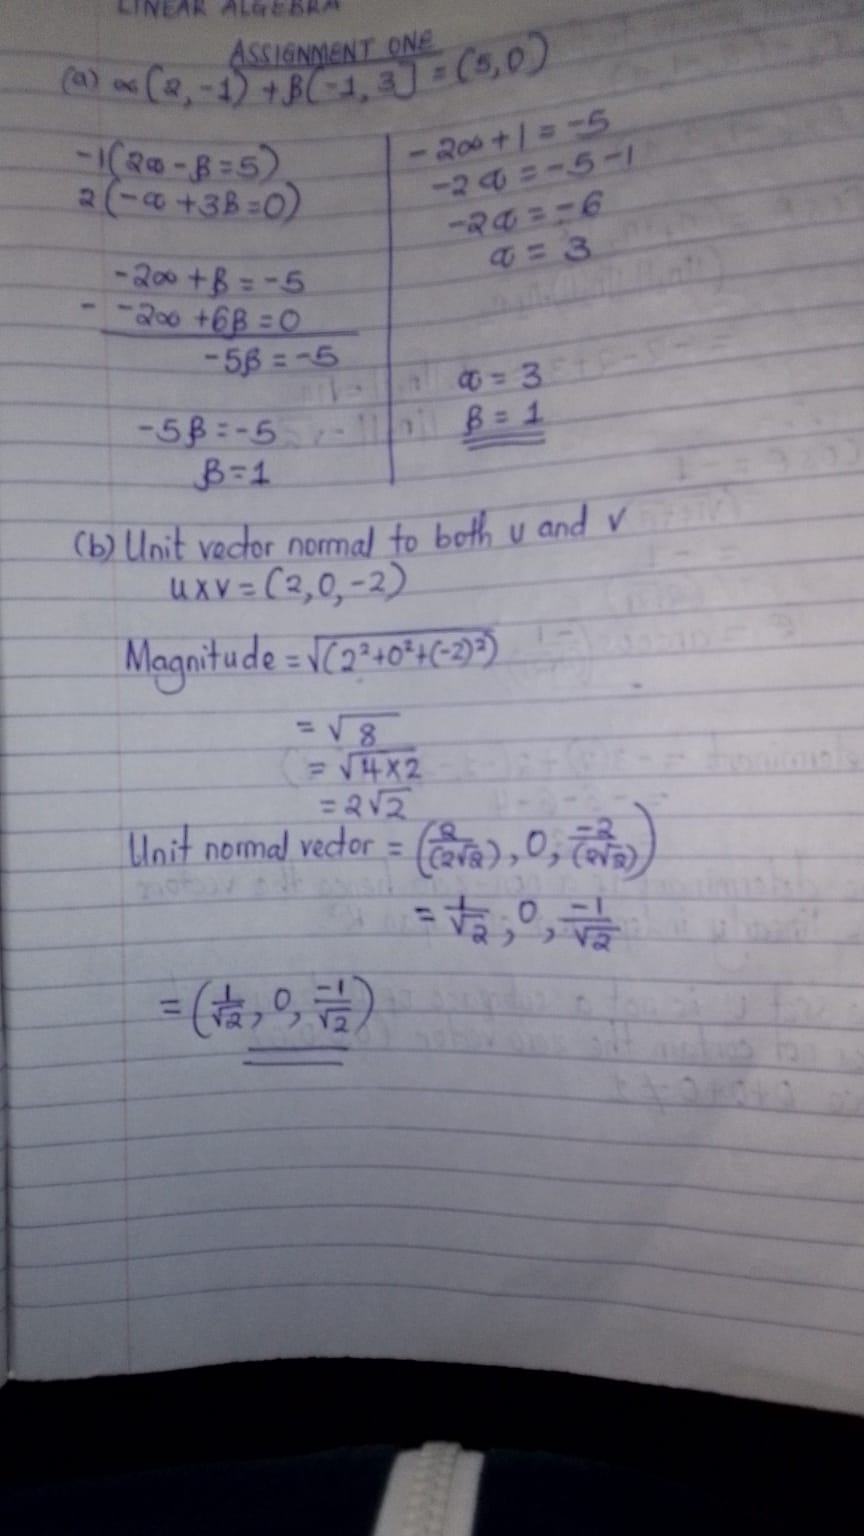 LINEAR ALGEBRA
ASSIGNMENT ONE
(a) ∝(2, -1) + β(-1, 3] = (5,0)
-1(2∝ - β = 5)
2(-∝ + 3β = 0)
-2∝ + β = -5
- -2∝ + 6β = 0
-5β = -5
-5β = -5
β = 1
-2∝ + 1 = -5
-2∝ = -5 -1
-2∝ = -6
∝ = 3
∝ = 3
β = 1
(b) Unit vector normal to both u and v
u x v = (2, 0, -2)
Magnitude = √(2² + 0² + (-2)²)
= √8
= √4×2
= 2√2
Unit normal vector = (2/(2√2), 0, -2/(2√2))
= 1/√2, 0, -1/√2
= (1/√2, 0, -1/√2)